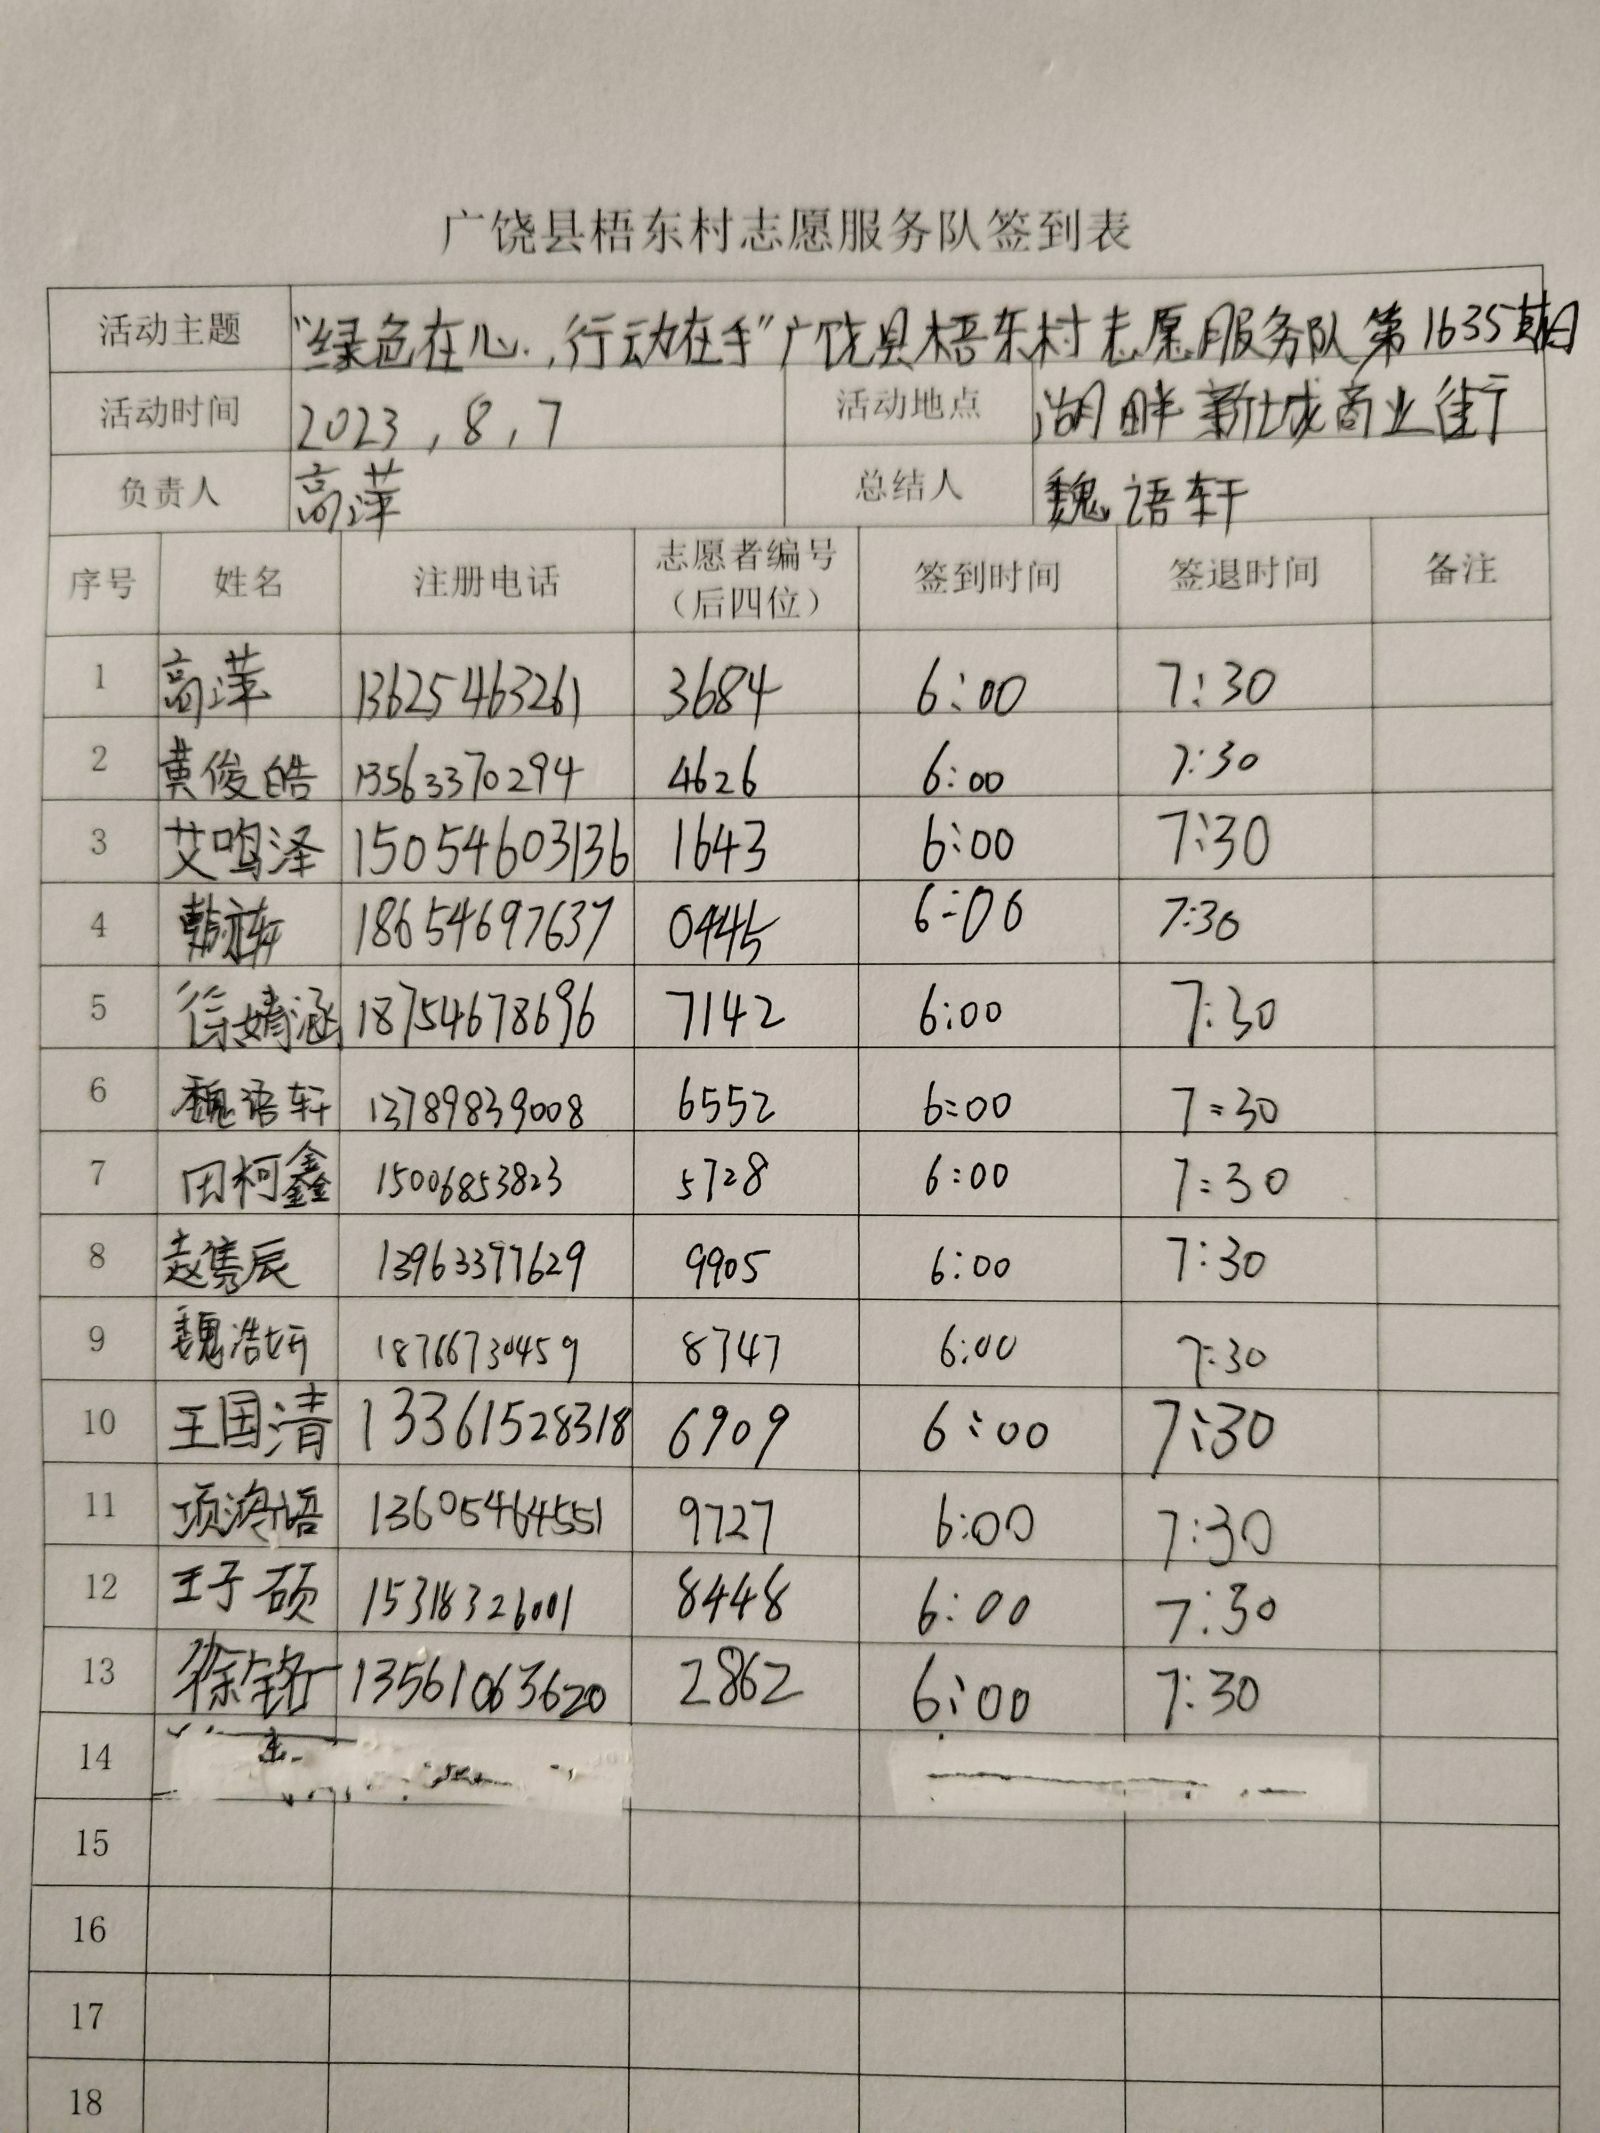 广饶县梧东村志愿服务队签到表
活动主题 “绿色在心，行动在手”广饶县梧东村志愿服务队第1635期
活动时间 2023,8,7 活动地点 湖畔新城商业街
负责人 高萍 总结人 魏语轩
序号 姓名 注册电话 志愿者编号（后四位） 签到时间 签退时间 备注
1 高萍 13625463261 3684 6:00 7:30
2 黄俊皓 13563370294 4626 6:00 7:30
3 艾鸣泽 15054603136 1643 6:00 7:30
4 18654697637 0445 6:00 7:30
5 徐婧涵 18754678696 7142 6:00 7:30
6 魏语轩 13789839008 6552 6:00 7:30
7 田柯鑫 15006853823 5728 6:00 7:30
8 赵隽辰 13963377629 9905 6:00 7:30
9 魏浩妍 18766730459 8747 6:00 7:30
10 王国清 13361528318 6909 6:00 7:30
11 13605464551 9727 6:00 7:30
12 王子硕 15318326001 8448 6:00 7:30
13 徐铭一 13561063620 2862 6:00 7:30
14
15
16
17
18